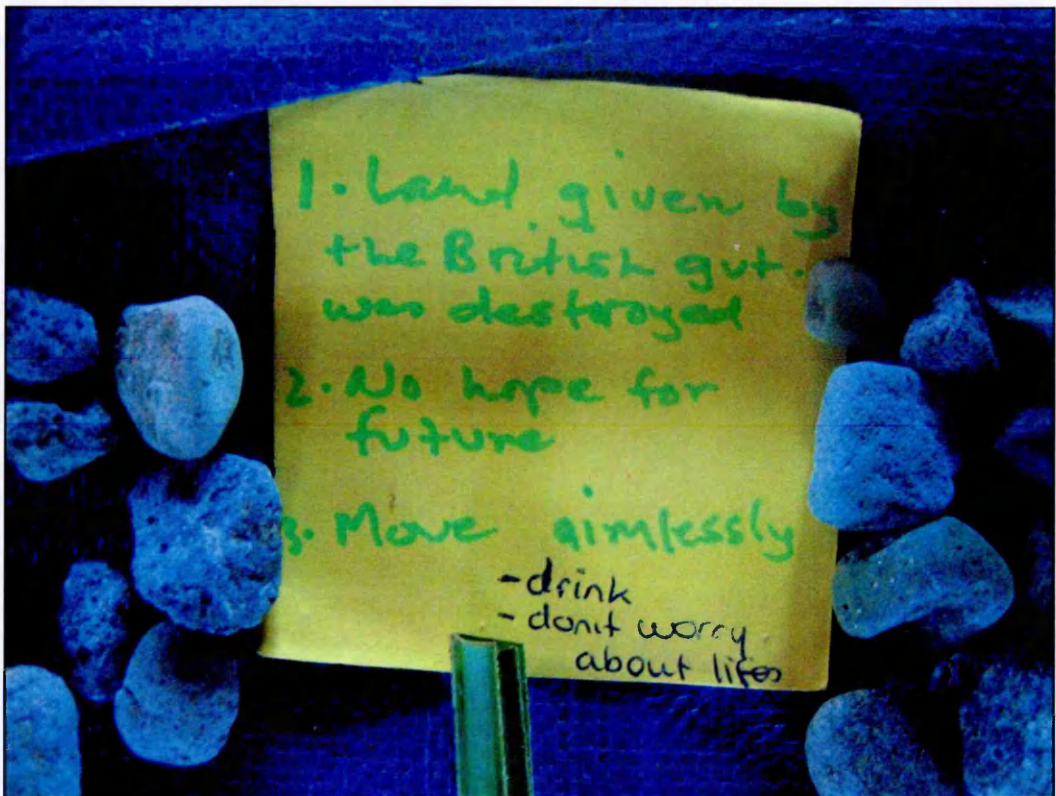 1. Land given by
the British gvt.
was destroyed
2. No hope for
future
3. Move aimlessly
- drink
- don't worry
about lifes